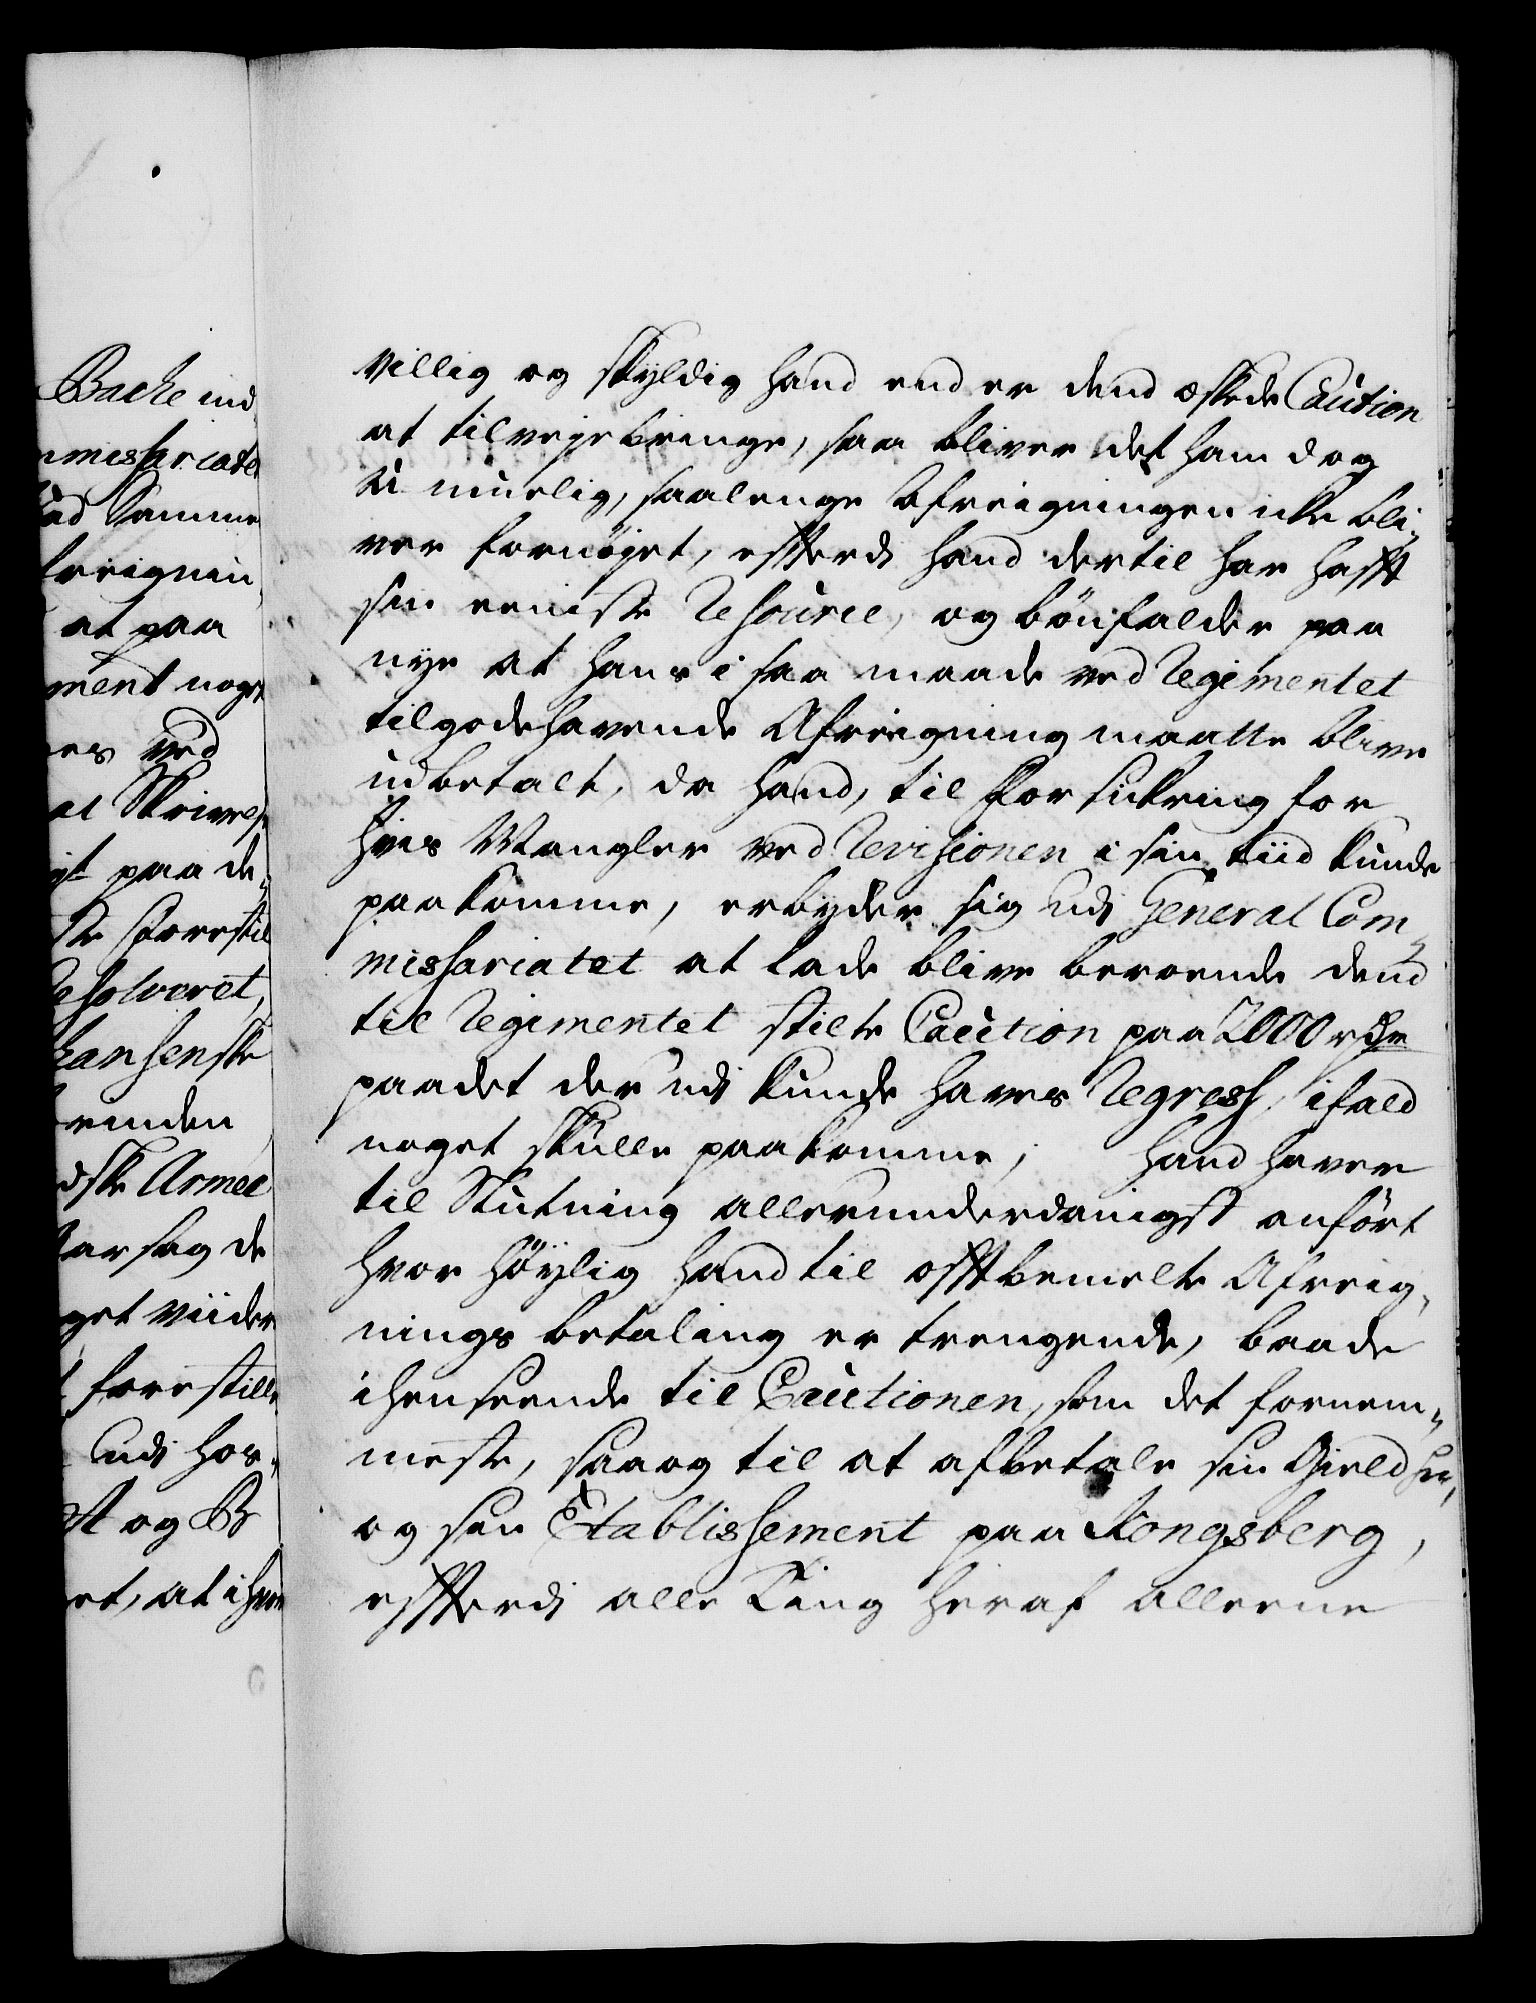 Backe ind
missariatet
ad Samme
freignin
at paa
ment noget
es ved
al Skrivelse
paa de,
ste Forestil
Resolveret,
hansenske
renden
dske Armee
aarsag de
get viider
forestille
udi hos,
A og B
et, at i hvor
villig og skyldig hand end er dend æskede Caution
at tilvejebringe, saa bliver det ham dog
u muelig, saalenge Afreigningen icke bli,
ver fornøjet, efterdi hand dertil har hafft
sin eeniste Resource, og bønfalder paa
nye at hans i saa maade ved Regimentet
tilgodehavende Afreigning maatte blive
udbetalt, da hand, til Forsickring for
hvis Mangler ved Revisionen i sin tiid kunde
paakomme, erbyder sig udi General Com,
missariatet at lade blive beroende dend
til Regimentet stilte Caution paa 2000 rdr
paadet der udi kunde haves Regress, ifald
noget skulle paakomme; Hand haver
til Slutning allerunderdanigst anført
hvor høylig hand til offtbemelte Afreig,
nings betaling er trengende, baade
i henseende til Cautionen, som det fornem,
meste, saaog til at afbetale sin Gield her,
og sin Etablissement paa Kongsberg,
efterdi alle Ting heraf alleene